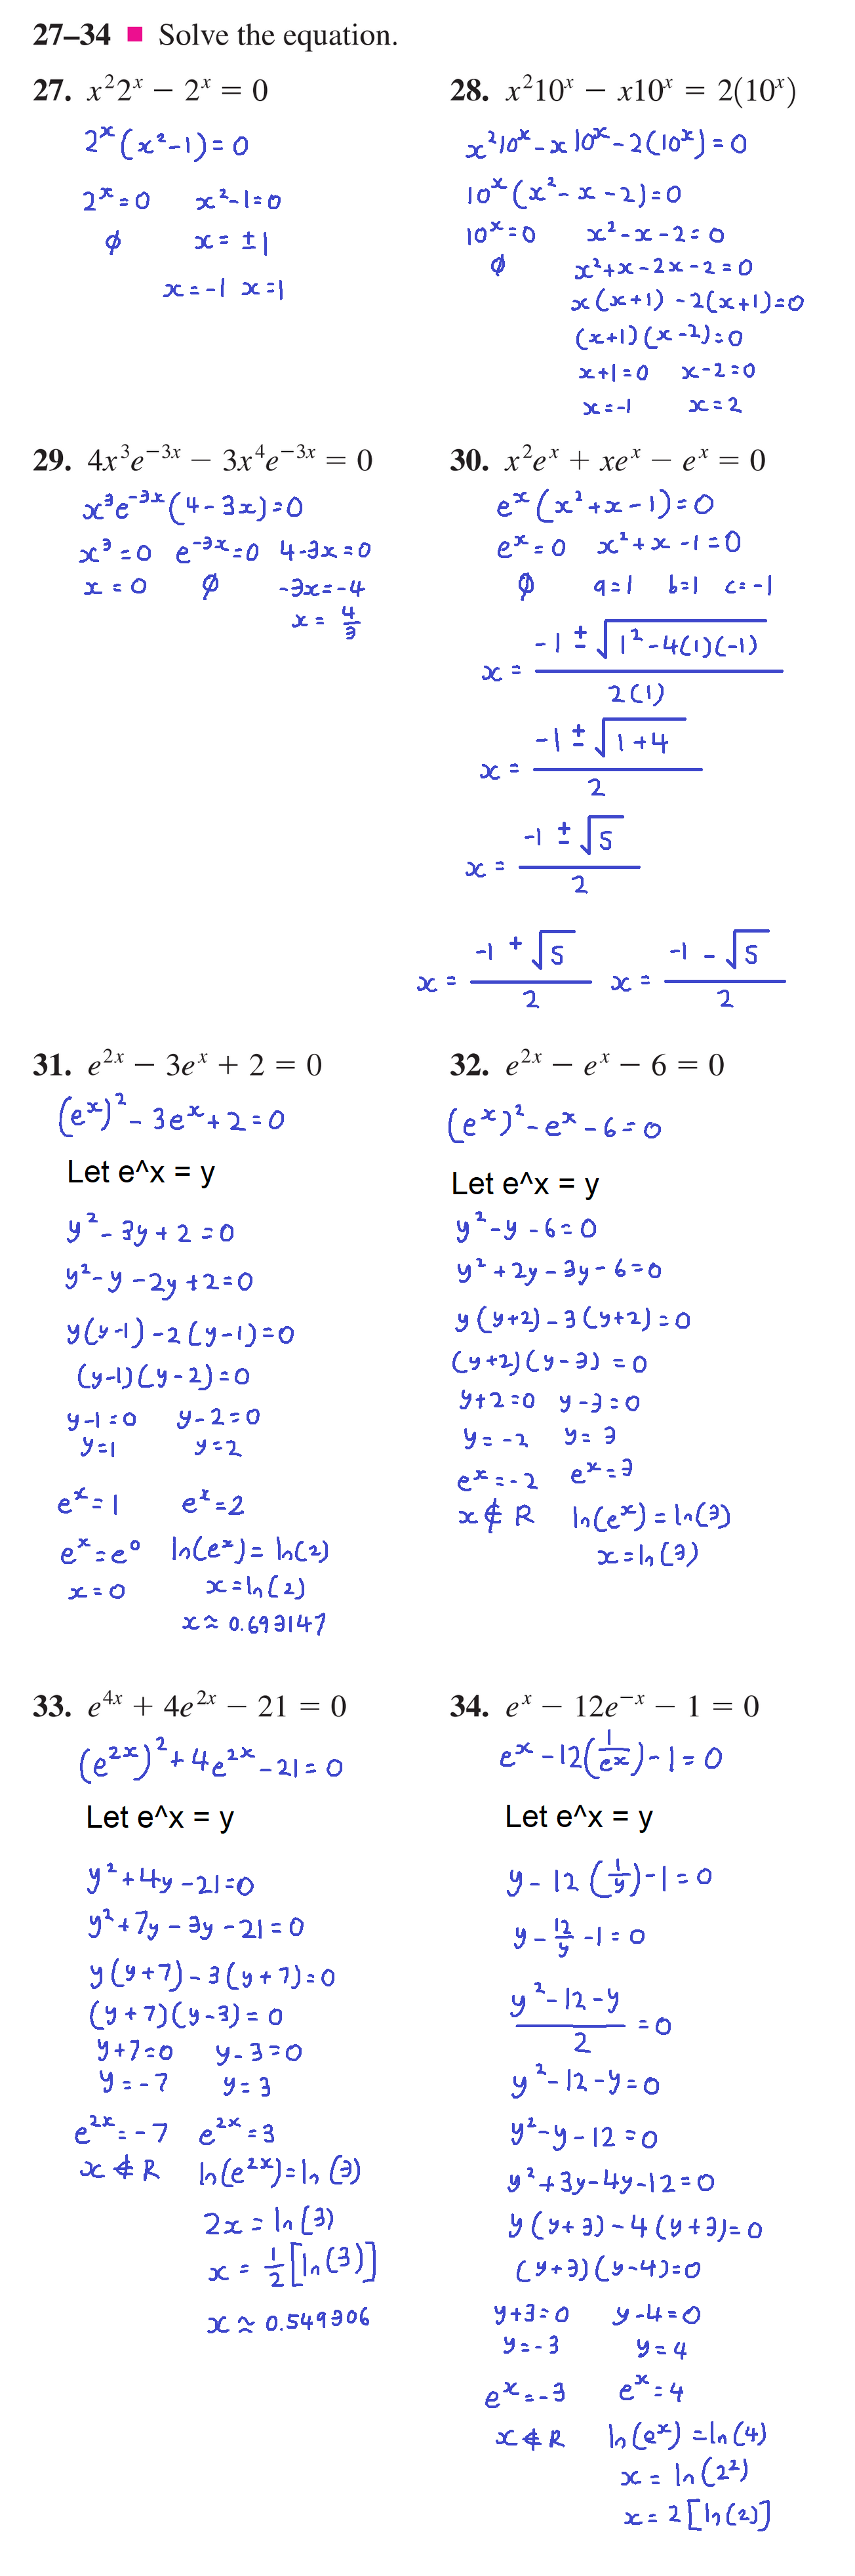 27–34 ■ Solve the equation.
27. x²2ˣ − 2ˣ = 0
2ˣ(x²-1)=0
2ˣ=0 x²-1=0
∅ x = ±1
x=-1 x=1
28. x²10ˣ − x10ˣ = 2(10ˣ)
x²10ˣ-x10ˣ-2(10ˣ)=0
10ˣ(x²-x-2)=0
10ˣ=0 x²-x-2=0
∅ x²+x-2x-2=0
x(x+1)-2(x+1)=0
(x+1)(x-2)=0
x+1=0 x-2=0
x=-1 x=2
29. 4x³e⁻³ˣ − 3x⁴e⁻³ˣ = 0
x³e⁻³ˣ(4-3x)=0
x³=0 e⁻³ˣ=0 4-3x=0
x=0 ∅ -3x=-4
x = 4/3
30. x²eˣ + xeˣ − eˣ = 0
eˣ(x²+x-1)=0
eˣ=0 x²+x-1=0
∅ a=1 b=1 c=-1
x = (-1 ± √(1²-4(1)(-1)))/(2(1))
x = (-1 ± √(1+4))/2
x = (-1 ± √5)/2
x = (-1 + √5)/2 x = (-1 - √5)/2
31. e²ˣ − 3eˣ + 2 = 0
(eˣ)²-3eˣ+2=0
Let e^x = y
y²-3y+2=0
y²-y-2y+2=0
y(y-1)-2(y-1)=0
(y-1)(y-2)=0
y-1=0 y-2=0
y=1 y=2
eˣ=1 eˣ=2
eˣ=e⁰ ln(eˣ)=ln(2)
x=0 x=ln(2)
x≈0.693147
32. e²ˣ − eˣ − 6 = 0
(eˣ)²-eˣ-6=0
Let e^x = y
y²-y-6=0
y²+2y-3y-6=0
y(y+2)-3(y+2)=0
(y+2)(y-3)=0
y+2=0 y-3=0
y=-2 y=3
eˣ=-2 eˣ=3
x∉R ln(eˣ)=ln(3)
x=ln(3)
33. e⁴ˣ + 4e²ˣ − 21 = 0
(e²ˣ)²+4e²ˣ-21=0
Let e^x = y
y²+4y-21=0
y²+7y-3y-21=0
y(y+7)-3(y+7)=0
(y+7)(y-3)=0
y+7=0 y-3=0
y=-7 y=3
e²ˣ=-7 e²ˣ=3
x∉R ln(e²ˣ)=ln(3)
2x=ln(3)
x = 1/2[ln(3)]
x≈0.549306
34. eˣ − 12e⁻ˣ − 1 = 0
eˣ-12(1/eˣ)-1=0
Let e^x = y
y-12(1/y)-1=0
y-12/y-1=0
(y²-12-y)/2=0
y²-12-y=0
y²-y-12=0
y²+3y-4y-12=0
y(y+3)-4(y+3)=0
(y+3)(y-4)=0
y+3=0 y-4=0
y=-3 y=4
eˣ=-3 eˣ=4
x∉R ln(eˣ)=ln(4)
x=ln(2²)
x=2[ln(2)]